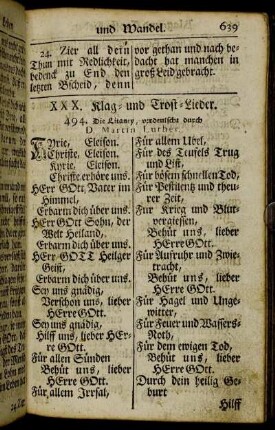 und Wandel. 639
24. Zier all dein
Thun mit Redlichkeit,
bedenck zu End den
letzten Bscheid, denn
vor gethan und nach be-
dacht hat manchen in
groß Leid gebracht.
XXX. Klag- und Trost-Lieder.
494. Die Litaney, verdeutscht durch
D. Martin Luther.
Kyrie, Eleison.
Christe, Eleison.
Kyrie, Eleison.
Christe erhöre uns.
HErr GOtt Vater im
Himmel,
Erbarm dich über uns.
HErr GOtt Sohn, der
Welt Heiland,
Erbarm dich über uns.
HErr GOTT Heilger
Geist,
Erbarm dich über uns.
Sey uns gnädig,
Verschon uns, lieber
HErre GOtt.
Sey uns gnädig,
Hilff uns, lieber HEr-
re GOtt.
Für allen Sünden
Behüt uns, lieber
HErre GOtt.
Für allem Irrsal,
Für allem Ubel,
Für des Teufels Trug
und List,
Für bösem schnellen Tod,
Für Pestilentz und theu-
rer Zeit,
Für Krieg und Blut-
vergiessen,
Behüt uns, lieber
HErre GOtt.
Für Aufruhr und Zwie-
tracht,
Behüt uns, lieber
HErre GOtt.
Für Hagel und Unge-
witter,
Für Feuer und Wassers-
Noth,
Für dem ewigen Tod,
Behüt uns, lieber
HErre GOtt.
Durch dein heilig Ge-
burt
Hilff